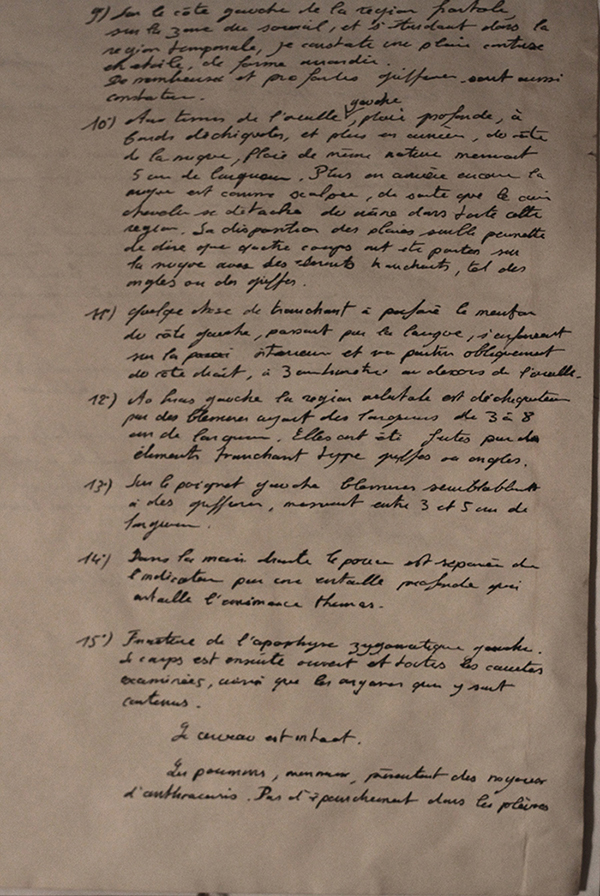 9) Sur le côté gauche de la région
sur la zone du sourcil, et s'étendant dans la
région temporale, je constate une plaie contuse
en étoile, de forme arrondie.
De nombreuses et profondes griffures sont aussi
constatées.
10°) Aux temes de l'oreille gauche, plaie profonde, à
bords déchiquetés, et plus en arrière, du côté
de la nuque, plaie de même nature mesurant
5 cm de longueur. Plus en arrière encore la
nuque est comme scalpée, de sorte que le cuir
chevelu se détache de même dans toute cette
région. La disposition des plaies semble permettre
de dire que quatre coups ont été portés sur
la nuque avec des éléments tranchants, tel des
ongles ou des griffes.
11°) Quelque chose de tranchant a perforé le menton
du côté gauche, passant par la langue, s'enfonçant
sur la paroi intérieure et va partir obliquement
du côté droit, à 3 centimètres au dessous de l'oreille.
12°) Au bras gauche la région est déchiquetée
par des blessures ayant des longueurs de 3 à 8
cm de longueur. Elles ont été faites par des
éléments tranchant type griffes ou ongles.
13°) Sur le poignet gauche blessures semblables
à des griffures, mesurant entre 3 et 5 cm de
longueur.
14°) Dans la main droite le pouce est séparée de
l'indicateur par une entaille profonde qui
entaille l'éminence thenar.
15°) Fracture de l'apophyse zygomatique gauche.
Le corps est ensuite ouvert et toutes les cavités
examinées, ainsi que les organes qui y sont
contenus.
Le cerveau est intact.
Les poumons, présentent des noyaux
d'anthracosis. Pas d'épanchement dans les plèvres